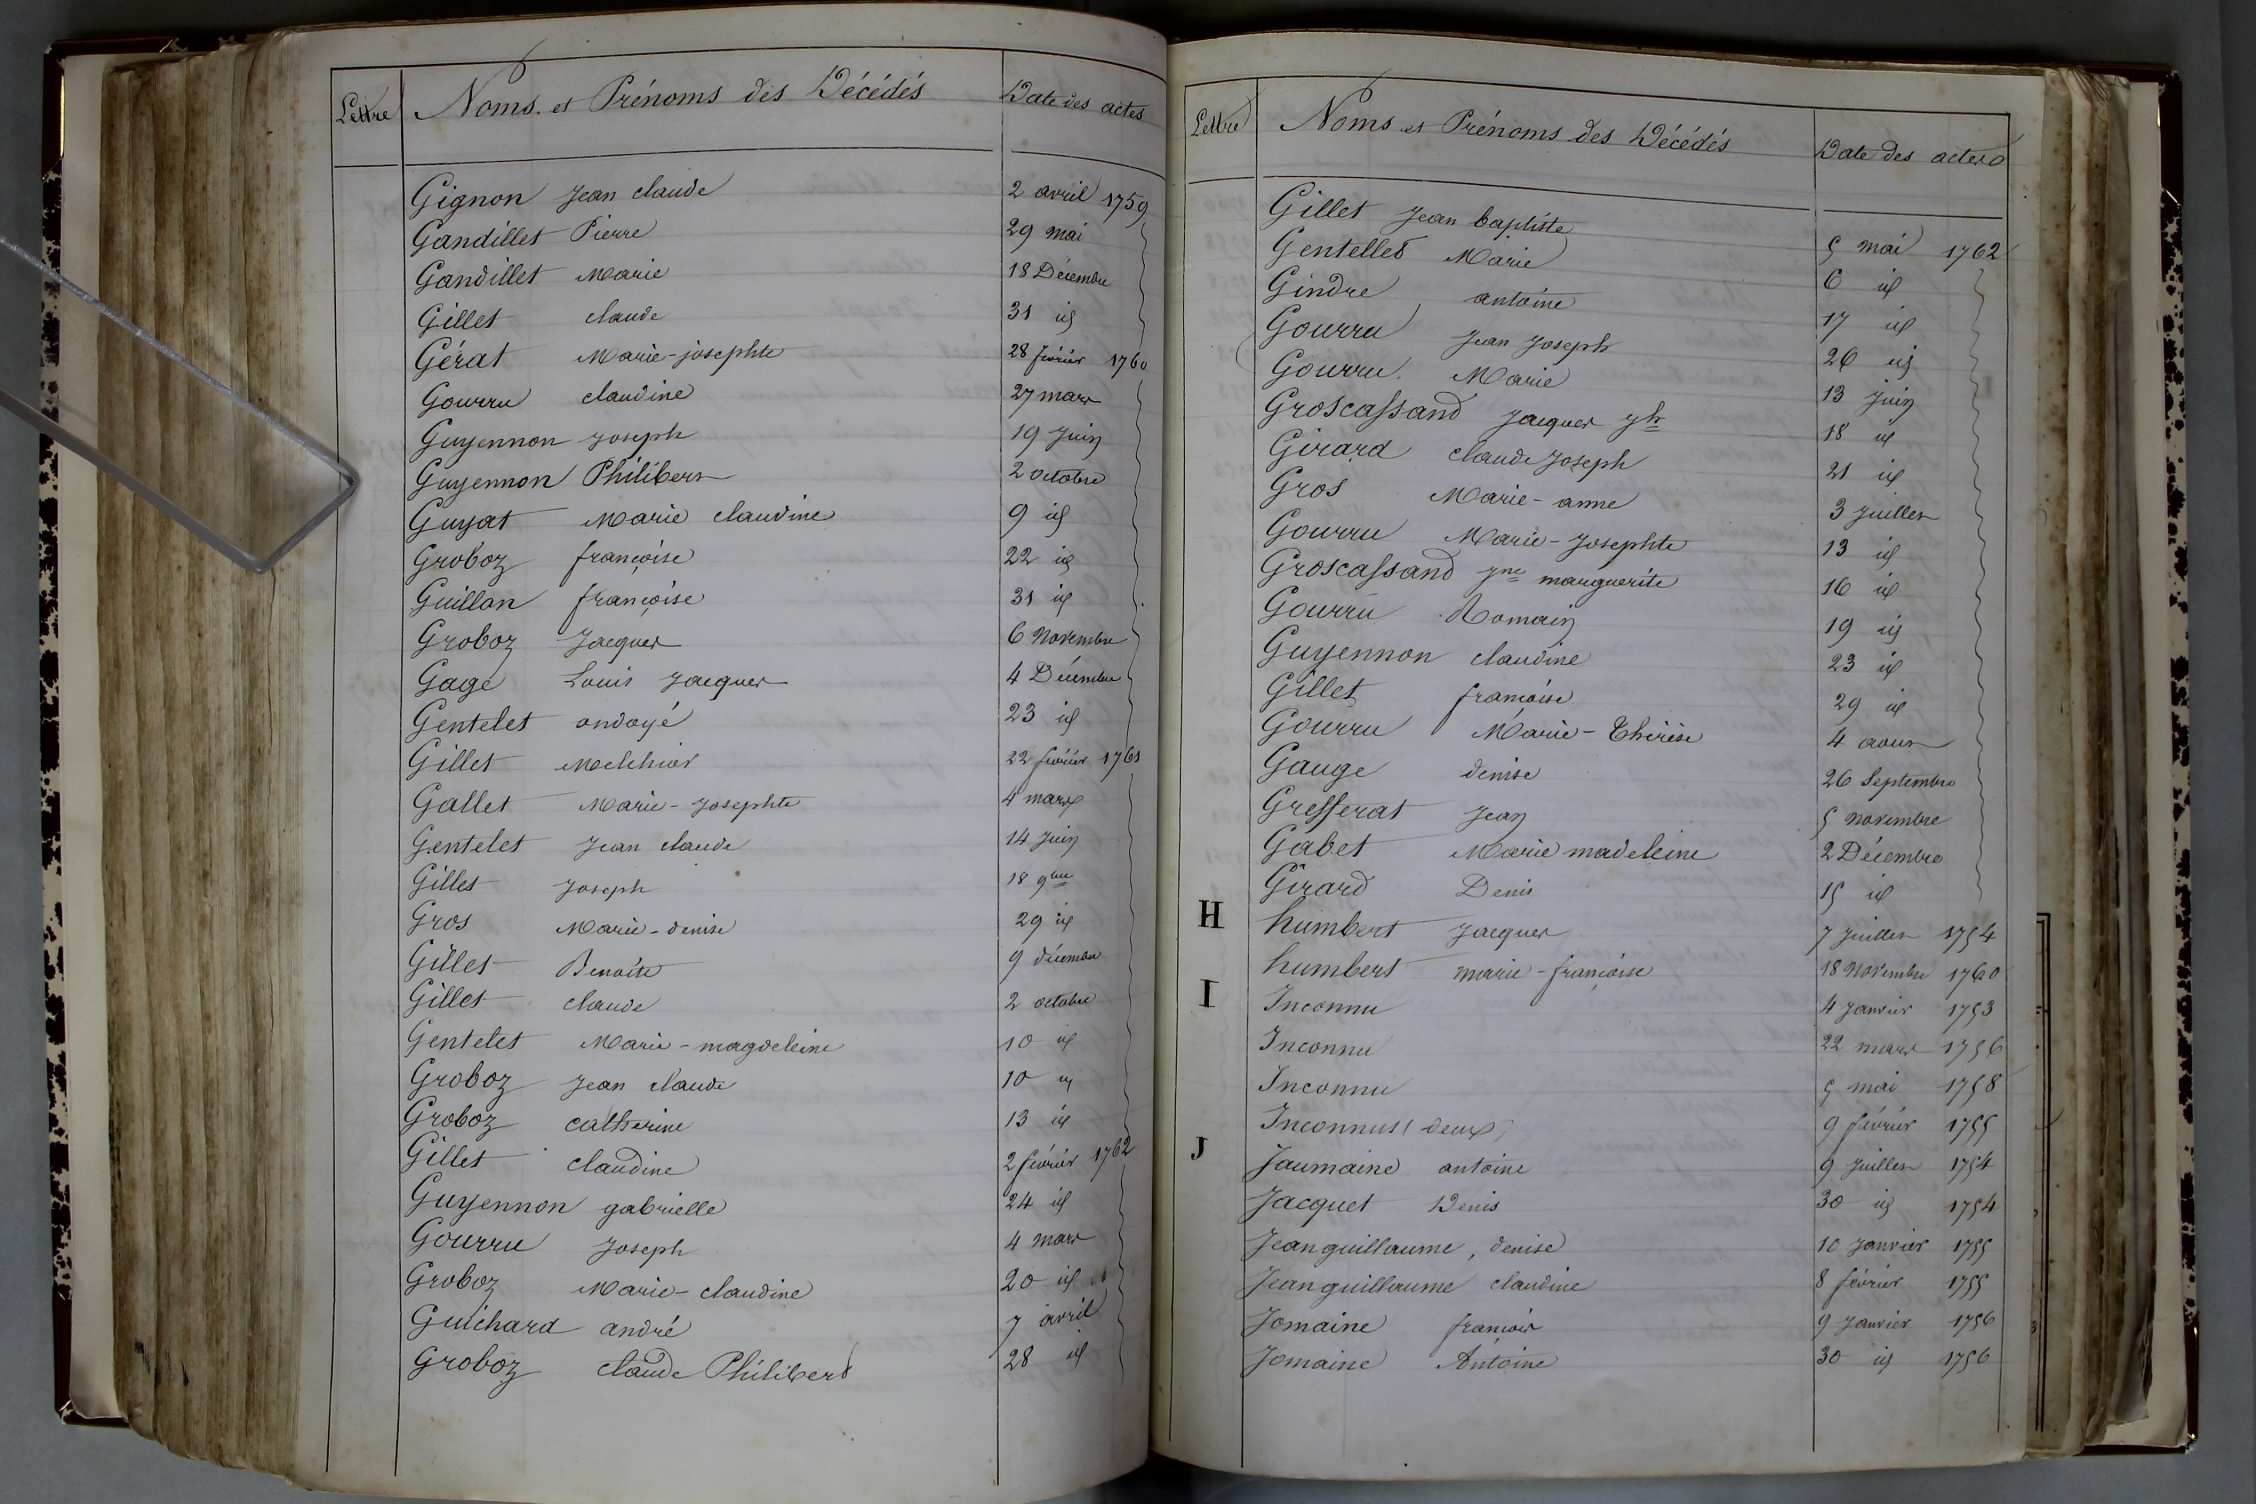 Lettre Noms et Prénoms des Décédés Date des actes
Gignon Jean claude 2 avril 1759
Gandillet Pierre 29 mai
Gandillet Marie 18 Décembre
Gillet claude 31 id
Gérat Marie-josephte 28 février 1760
Gourru claudine 27 mars
Guyennon Joseph 19 Juin
Guyennon Philibert 2 octobre
Guyat Marie claudine 9 id
Groboz françoise 22 id
Guillon françoise 31 id
Groboz Jacques 6 Novembre
Gage Louis Jacques 4 Décembre
Gentelet ondoyé 23 id
Gillet Melchior 22 février 1761
Gallet Marie-Josephte 4 mars
Gentelet Jean claude 14 Juin
Gillet Joseph 18 9bre
Gros Marie-denise 29 id
Gillet Benoite 9 décembre
Gillet claude 2 octobre
Gentelet Marie-magdeleine 10 id
Groboz Jean claude 10 id
Groboz catherine 13 id
Gillet claudine 2 février 1762
Guyennon gabrielle 24 id
Gourru Joseph 4 mars
Groboz Marie-claudine 20 id
Guichard andré 7 avril
Groboz claude Philibert 28 id
Lettre Noms et Prénoms des Décédés Date des actes
Gillet Jean baptiste 5 mai 1762
Gentellet Marie 6 id
Gindre antoine 17 id
Gourru Jean Joseph 26 id
Gourru Marie 13 juin
Groscassand Jacques Jh 18 id
Girard claude Joseph 21 id
Gros Marie-anne 3 Juillet
Gourru Marie-Josephte 13 id
Groscassand Jne marguerite 16 id
Gourru Romain 19 id
Guyennon claudine 23 id
Gillet françoise 29 id
Gourru Marie-Thérèse 4 aout
Gauge denise 26 Septembre
Grefferat Jean 5 novembre
Gabet Marie madeleine 2 Décembre
Girard Denis 15 id
H humbert Jacques 7 Juillet 1754
humbert marie-françoise 18 Novembre 1760
I Inconnu 4 Janvier 1753
Inconnu 22 mars 1756
Inconnu 5 mai 1758
Inconnus (deux) 9 février 1755
J Jaumaine antoine 9 Juillet 1754
Jacquet Denis 30 id 1754
Jeanguillaume, denise 10 Janvier 1755
Jeanguillaume claudine 8 février 1755
Jomaine françois 9 Janvier 1756
Jomaine Antoine 30 id 1756